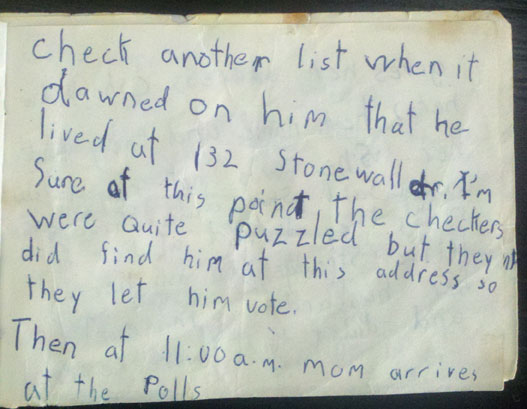 check another list when it
dawned on him that he
lived at 132 Stonewall dr. I'm
Sure at this point the checkers
were quite puzzled but they
did find him at this address so
they let him vote.
Then at 11:00 a.m. mom arrives
at the Polls